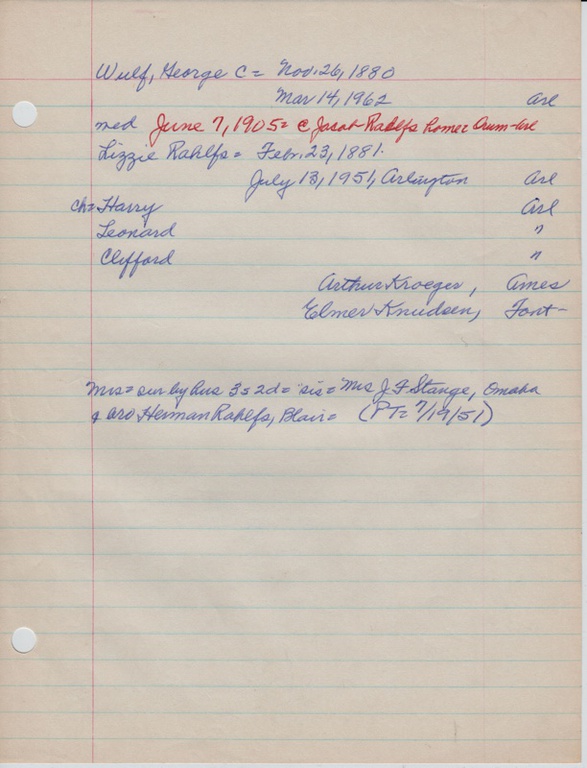 Wulf, George C = Nov. 26, 1880
Mar 14, 1962 arl
med June 7, 1905 = @ Jacob Rahlfs home =
Lizzie Rahlfs = Febr. 23, 1881.
July 13, 1951, Arlington arl
ch = Harry arl
Leonard "
Clifford "
Arthur Kroeger, Ames
Elmer Knudsen, Font-
Mrs = sur by hus 3s 2d = sis = Mrs J F Stange, Omaha
& bro Herman Rahlfs, Blair = (PT = 7/19/51)